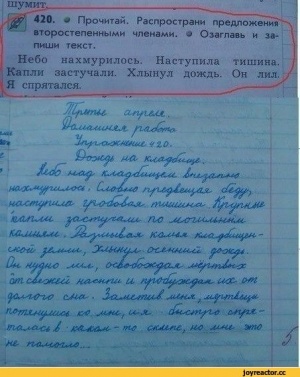 шумит.
420. Прочитай. Распространи предложения
второстепенными членами. Озаглавь и за-
пиши текст.
Небо нахмурилось. Наступила тишина.
Капли застучали. Хлынул дождь. Он лил.
Я спрятался.
Третье апреля.
Домашняя работа
Упражнение 420.
Дождь на кладбище.
Небо над кладбищем внезапно
нахмурилось. Словно предвещая беду,
наступила гробовая тишина. Крупные
капли застучали по могильным
камням. Размывая комья кладбищен-
ской земли, хлынул осенний дождь.
Он нудно лил, освобождая мёртвых
от свежей и пробуждая их от
долгого сна. Заметив меня, мертвецы
потянулись ко мне, и я быстро спря-
талась в каком-то склепе, но мне это
не помогло...
5
joyreactor.cc